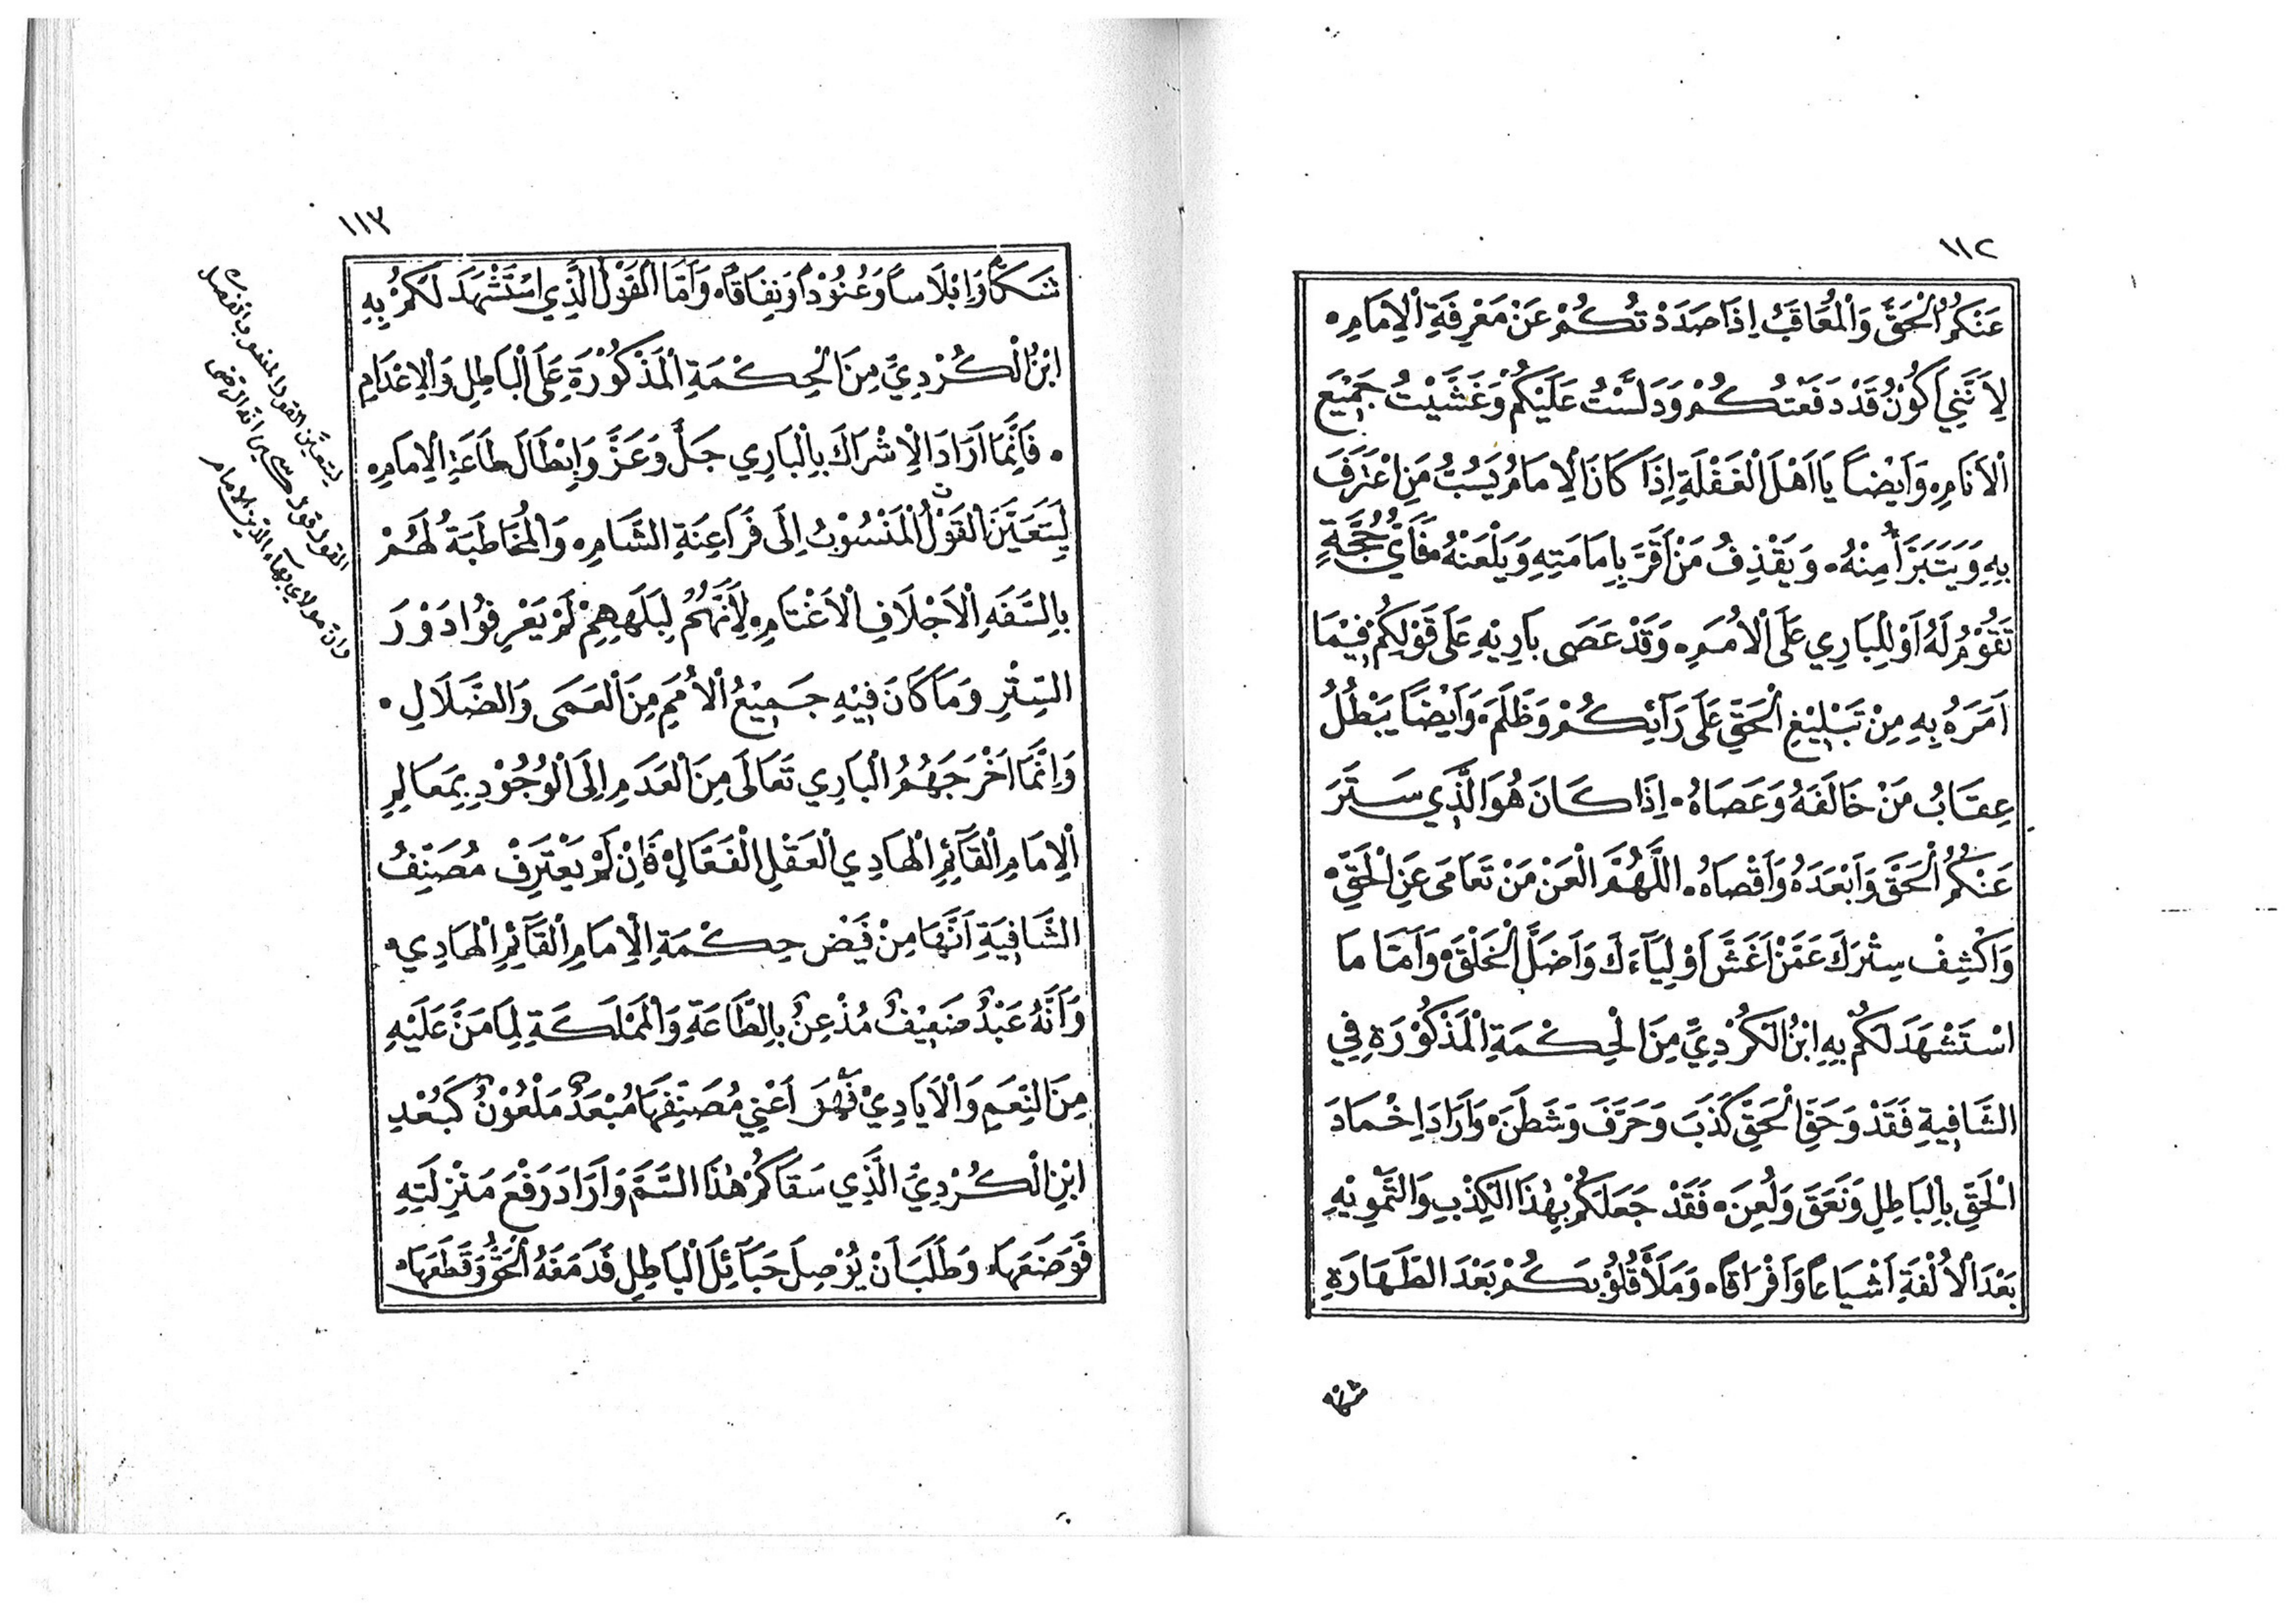 ١١٢
عَنْكُمُ الْحَقَّ وَالْمُعَاقَبُ اِذَا صَدَدْتُكُمْ عَنْ مَعْرِفَةِ الْاِمَامِ.
لِاَنَّنِي اَكُوْنُ قَدْ دَفَعْتُكُمْ وَدَلَّسْتُ عَلَيْكُمْ وَغَشَّيْتُ جَمِيْعَ
الْاَنَامِ. وَاَيْضاً يَا اَهْلَ الْغَفْلَةِ اِذَا كَانَ الْاِمَامُ يَسُبُّ مَنِ اعْتَرَفَ
بِهِ وَيَتَبَرَّأُ مِنْهُ. وَيَقْذِفُ مَنْ اَقَرَّ بِاِمَامَتِهِ وَيَلْعَنْهُ فَاَيُّ حُجَّةٍ
تَقُوْمُ لَهُ اَوْ لِلْبَارِي عَلَى الْاُمَمِ. وَقَدْ عَصَى بَارِيْهِ عَلَى قَوْلِكُمْ فِيْمَا
اَمَرَهُ بِهِ مِنْ تَبْلِيْغِ الْحَقِّ عَلَى رَاْئِكُمْ وَظَلَمَ. وَاَيْضاً يَبْطُلُ
عِقَابُ مَنْ خَالَفَهُ وَعَصَاهُ. اِذَا كَانَ هُوَ الَّذِي سَتَرَ
عَنْكُمُ الْحَقَّ وَاَبْعَدَهُ وَاَقْصَاهُ. اللَّهُمَّ الْعَنْ مَنْ تَعَامَى عَنِ الْحَقِّ.
وَاكْشِفْ سِتْرَكَ عَمَّنْ اَغَشَّ اَوْلِيَآءَكَ وَاَضَلَّ الْخَلْقَ. وَاَمَّا مَا
اسْتَشْهَدَ لَكُمْ بِهِ ابْنُ الْكُرْدِيِّ مِنَ الْحِكْمَةِ الْمَذْكُوْرَةِ فِي
الشَّافِيةِ فَقَدْ وَحَقِّ الْحَقِّ كَذَبَ وَحَرَّفَ وَشَطَنَ. وَاَرَادَ اِخْمَادَ
الْحَقِّ بِالْبَاطِلِ وَنَعَقَ وَلُعِنَ. فَقَدْ جَعَلَكُمْ بِهٰذَا الْكِذْبِ وَالتَّمْوِيْهِ
بَعْدَ الْاُلْفَةِ اَشْيَاعاً وَاَفْرَاقاً. وَمَلَأَ قُلُوْبَكُمْ بَعْدَ الطَّهَارَةِ
١١٣
شَكّاً وَاِبْلَاساً وَعُنُوْداً وَنِفَاقاً. وَاَمَّا الْقَوْلُ الَّذِي اسْتَشْهَدَ لَكُمْ بِهِ
ابْنُ الْكُرْدِيِّ مِنَ الْحِكْمَةِ الْمَذْكُوْرَةِ عَلَى الْبَاطِلِ وَالْاِعْدَامِ
. فَاِنَّمَا اَرَادَ الْاِشْرَاكَ بِالْبَارِي جَلَّ وَعَزَّ وَاِبْطَالَ طَاعَةِ الْاِمَامِ.
لِيَتَعَيَّنَ الْقَوْلُ الْمَنْسُوْبُ اِلَى فَرَاعِنَةِ الشَّامِ. وَالْمُخَاطَبَةُ لَهُمْ
بِالسَّفَهِ الْاَجْلَافِ الْاَغْتَامِ. لِاَنَّهُمْ لِبَلَهِهِمْ لَمْ يَعْرِفُوْا دَوْرَ
السِّتْرِ وَمَا كَانَ فِيْهِ جَمِيْعُ الْاُمَمِ مِنَ الْعَمَى وَالضَّلَالِ.
وَاِنَّمَا اَخْرَجَهُمُ الْبَارِي تَعَالَى مِنَ الْعَدَمِ اِلَى الْوُجُوْدِ بِمَعَالِمِ
الْاِمَامِ الْقَآئِمِ الْهَادِي الْعَقْلِ الْفَعَّالِ. فَاِنْ لَمْ يَعْتَرِفْ مُصَنِّفُ
الشَّافِيَةِ اَنَّهَا مِنْ فَيْضِ حِكْمَةِ الْاِمَامِ الْقَآئِمِ الْهَادِي.
وَاَنَّهُ عَبْدٌ ضَعِيْفٌ مُذْعِنٌ بِالطَّاعَةِ وَالْمَمْلَكَةِ لِمَا مَنَّ عَلَيْهِ
مِنَ النِّعَمِ وَالْاَيَادِيْ فَهُوَ اَعْنِي مُصَنِّفَهَا مُبْعَدٌ مَلْعُوْنٌ كَبُعْدِ
ابْنِ الْكُرْدِيِّ الَّذِي سَقَاكُمْ هٰذَا السَّمَّ وَاَرَادَ رَفْعَ مَنْزِلَتِهِ
فَوَضَعَهَا. وَطَلَبَ اَنْ يُوْصِلَ حَبَآئِلَ الْبَاطِلِ فَدَمَغَهُ الْحَقُّ وَقَطَعَهَا.